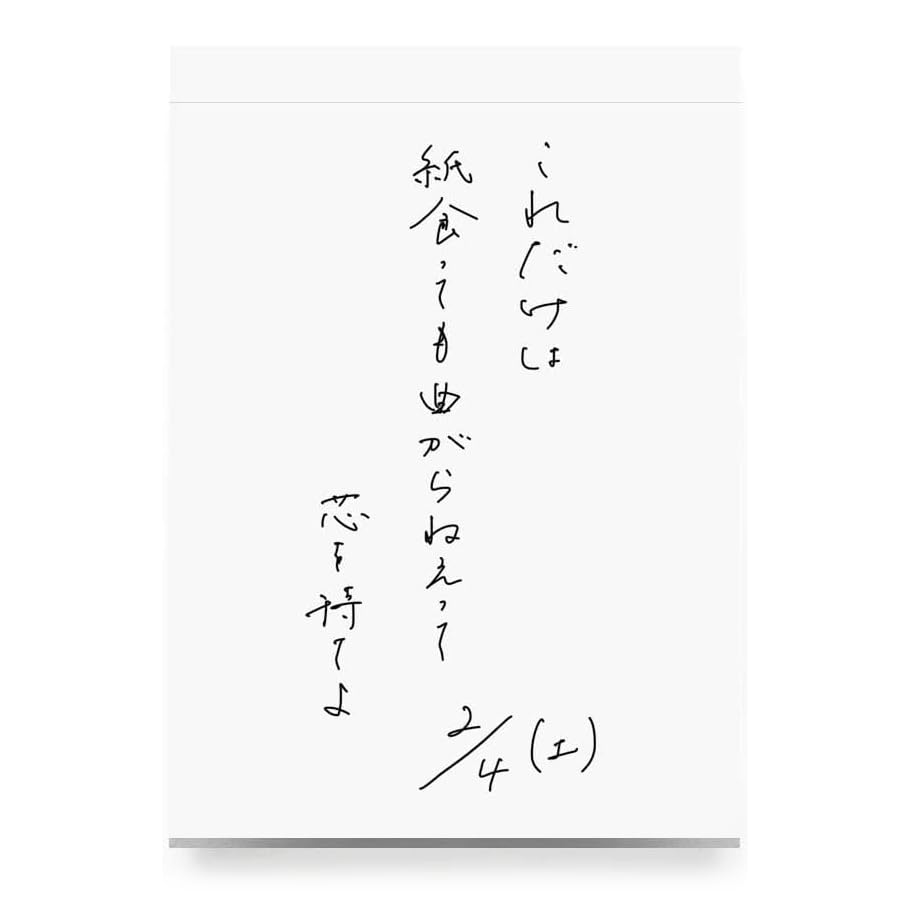 これだけは
紙食っても曲がらねえって
芯を持てよ
2/4(土)